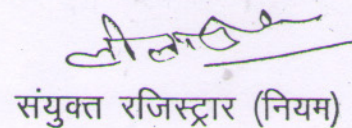 संयुक्त रजिस्ट्रार (नियम)